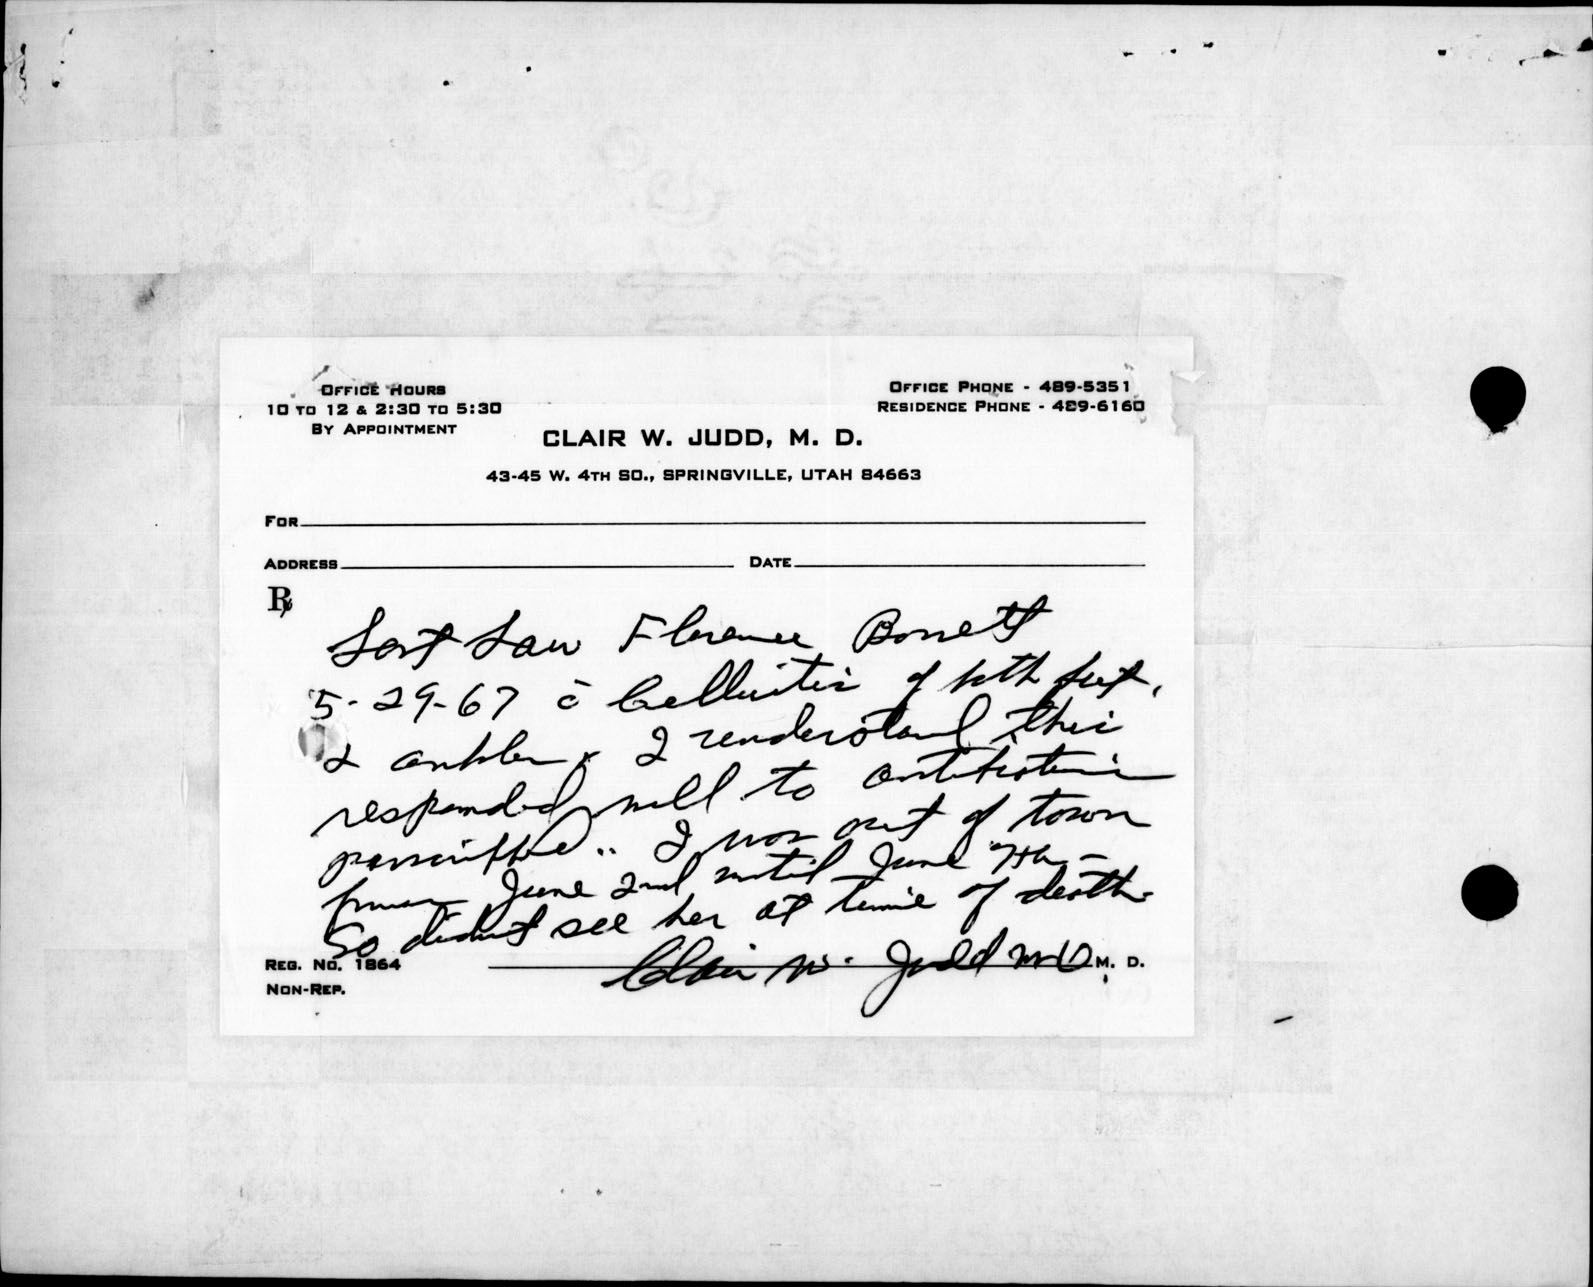 OFFICE HOURS
10 TO 12 & 2:30 TO 5:30
BY APPOINTMENT
OFFICE PHONE - 489-5351
RESIDENCE PHONE - 489-6160
CLAIR W. JUDD, M. D.
43-45 W. 4TH SO., SPRINGVILLE, UTAH 84663
FOR
ADDRESS DATE
℞
Last saw Florence
5-29-67 c̄ Cellulitis of both feet,
& ankles I understand this
responded well to antibiotics
I was out of town
from June 2nd until June 7th -
So didn't see her at time of death.
Clair W. Judd MD M. D.
REG. NO. 1864
NON-REP.